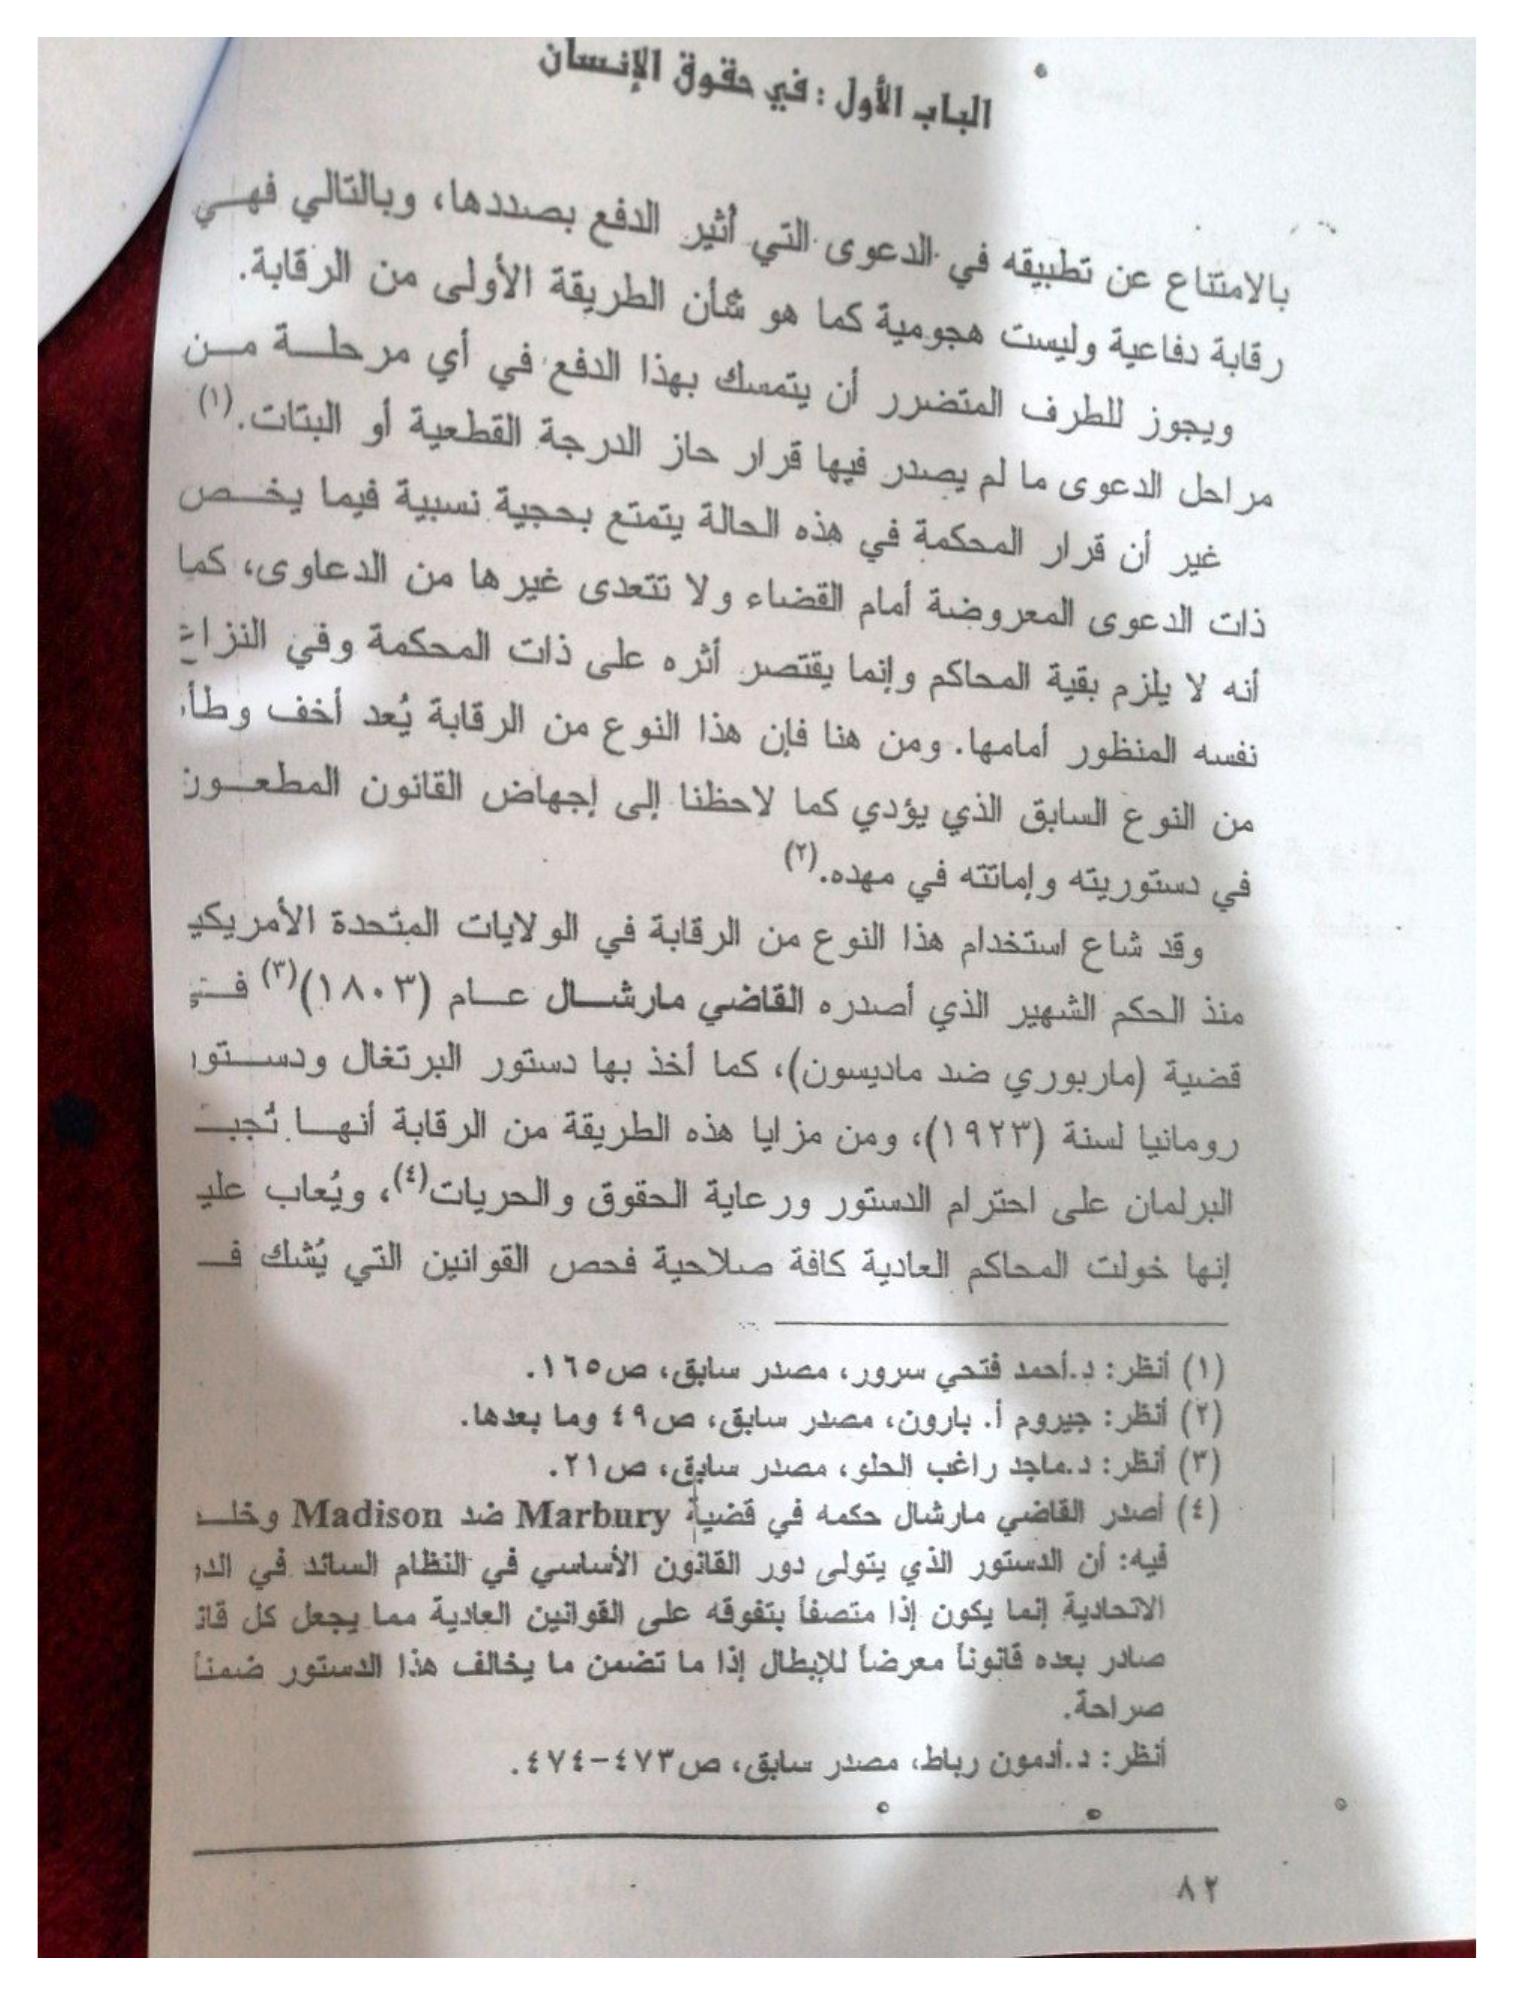 الباب الأول : في حقوق الإنسان
بالامتناع عن تطبيقه في الدعوى التي أثير الدفع بصددها، وبالتالي فهي
رقابة دفاعية وليست هجومية كما هو شأن الطريقة الأولى من الرقابة.
ويجوز للطرف المتضرر أن يتمسك بهذا الدفع في أي مرحلة من
مراحل الدعوى ما لم يصدر فيها قرار حاز الدرجة القطعية أو البتات.(١)
غير أن قرار المحكمة في هذه الحالة يتمتع بحجية نسبية فيما يخص
ذات الدعوى المعروضة أمام القضاء ولا تتعدى غيرها من الدعاوى، كما
أنه لا يلزم بقية المحاكم وإنما يقتصر أثره على ذات المحكمة وفي النزاع
نفسه المنظور أمامها. ومن هنا فإن هذا النوع من الرقابة يُعد أخف وطأ
من النوع السابق الذي يؤدي كما لاحظنا إلى إجهاض القانون المطعون
في دستوريته وإماتته في مهده.(٢)
وقد شاع استخدام هذا النوع من الرقابة في الولايات المتحدة الأمريكي
منذ الحكم الشهير الذي أصدره القاضي مارشال عام (١٨٠٣)(٣) في
قضية (ماربوري ضد ماديسون)، كما أخذ بها دستور البرتغال ودستور
رومانيا لسنة (١٩٢٣)، ومن مزايا هذه الطريقة من الرقابة أنها تُجب
البرلمان على احترام الدستور ورعاية الحقوق والحريات(٤)، ويُعاب علي
إنها خولت المحاكم العادية كافة صلاحية فحص القوانين التي يُشك ف
(١) أنظر: د.أحمد فتحي سرور، مصدر سابق، ص١٦٥.
(٢) أنظر: جيروم أ. بارون، مصدر سابق، ص٤٩ وما بعدها.
(٣) أنظر: د.ماجد راغب الحلو، مصدر سابق، ص٢١.
(٤) أصدر القاضي مارشال حكمه في قضية Marbury ضد Madison وخل
فيه: أن الدستور الذي يتولى دور القانون الأساسي في النظام السائد في الدو
الاتحادية إنما يكون إذا متصفاً بتفوقه على القوانين العادية مما يجعل كل قان
صادر بعده قانوناً معرضاً للإبطال إذا ما تضمن ما يخالف هذا الدستور ضمناً
صراحة.
أنظر: د.أدمون رباط، مصدر سابق، ص٤٧٣-٤٧٤.
٨٢